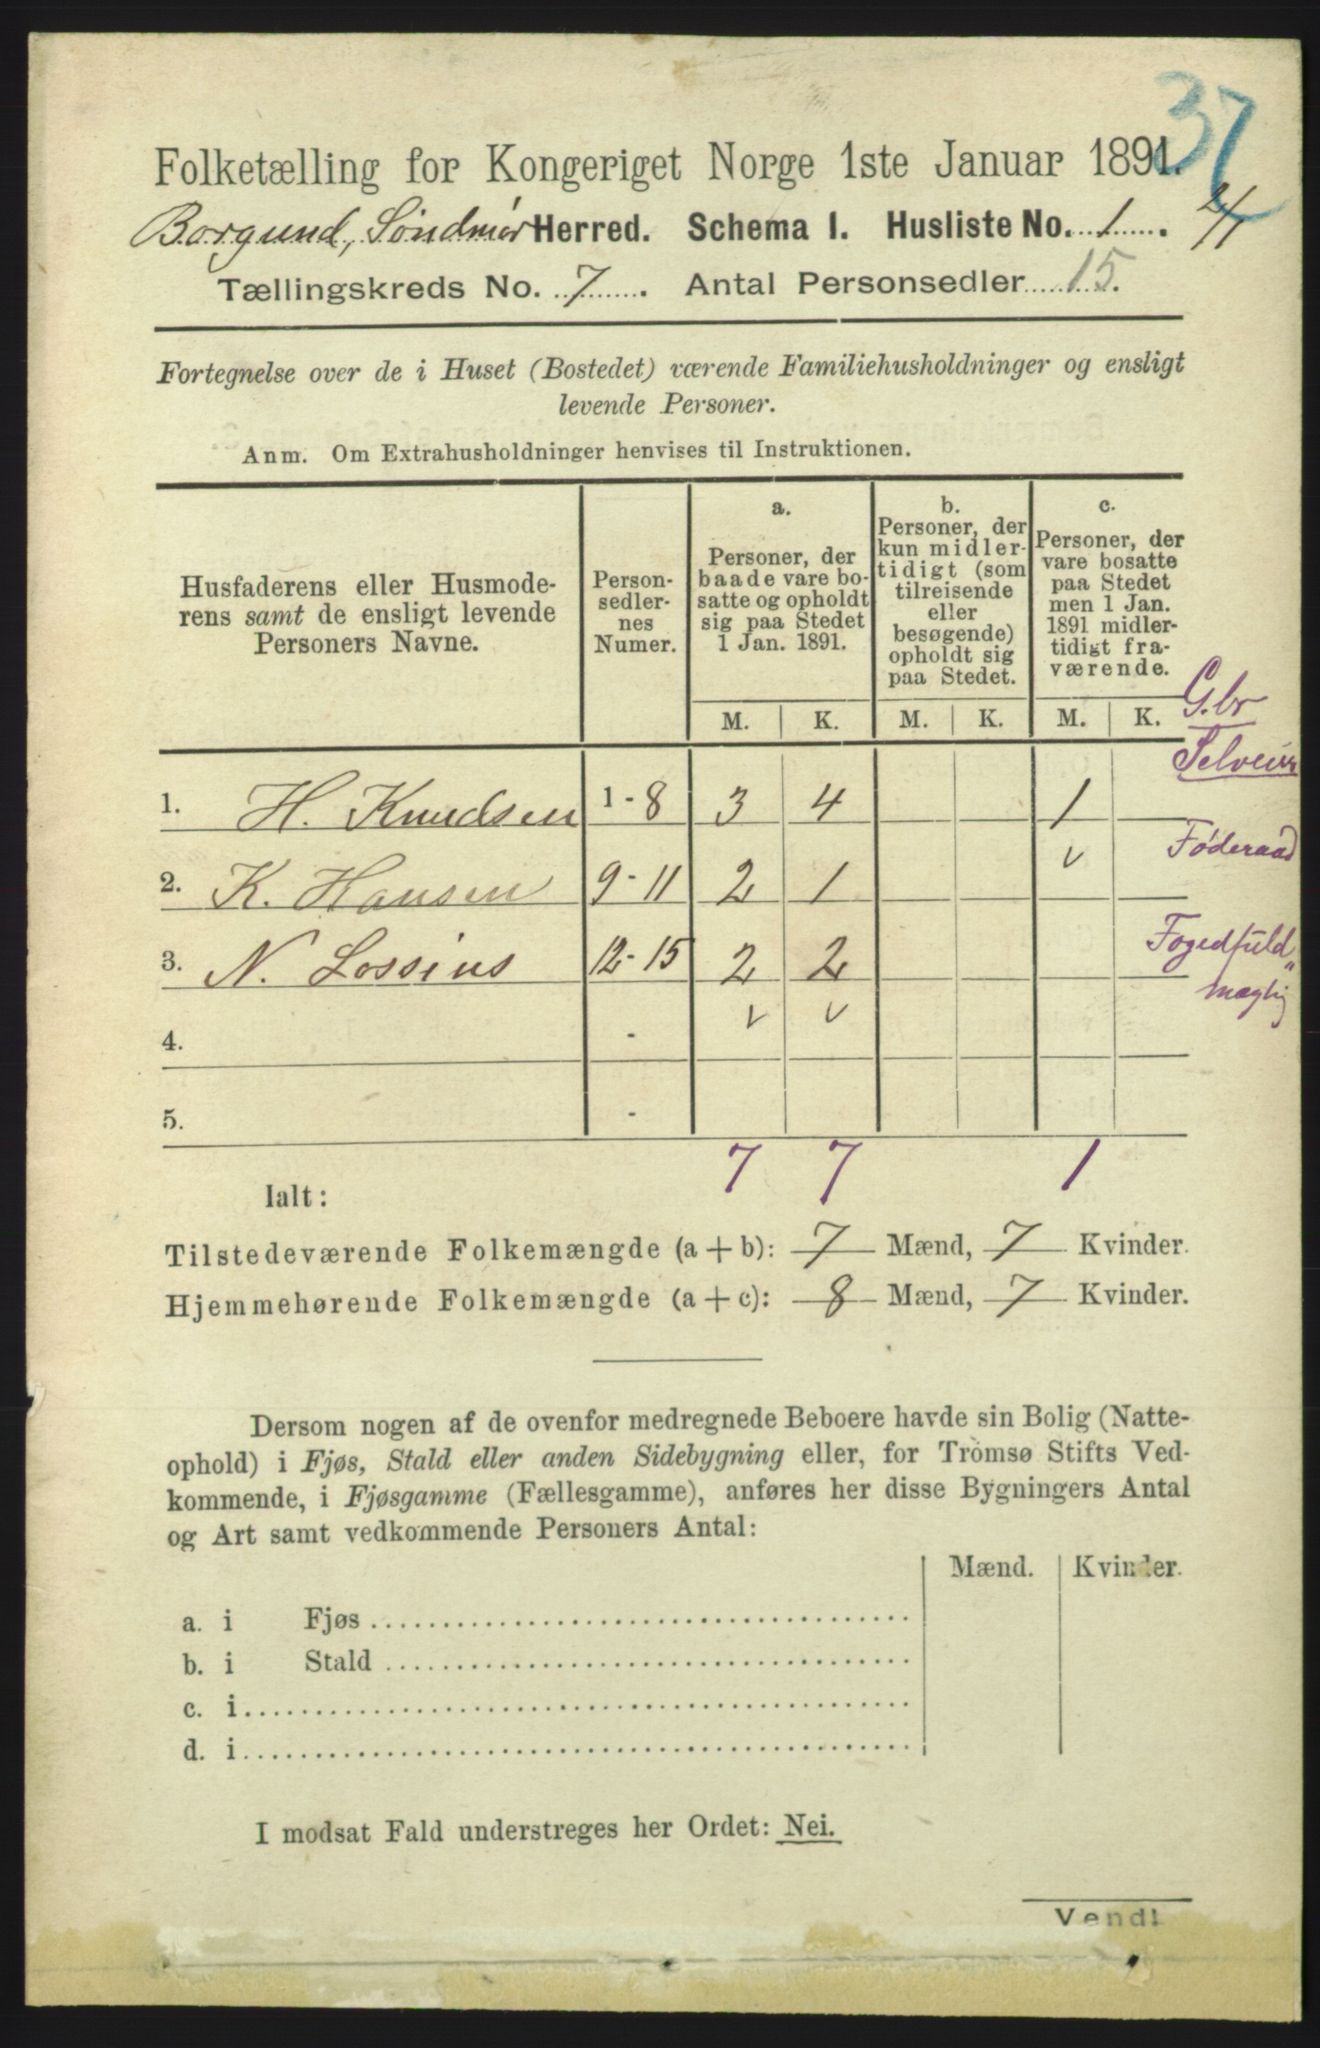 37
Folketælling for Kongeriget Norge 1ste Januar 1891.
Borgund, Søndmør Herred. Schema I. Husliste No. 1.
Tællingskreds No. 7. Antal Personsedler 15.
Fortegnelse over de i Huset (Bostedet) værende Familiehusholdninger og ensligt
levende Personer.
Anm. Om Extrahusholdninger henvises til Instruktionen.
Husfaderens eller Husmode-
rens samt de ensligt levende
Personers Navne.
Person-
sedler-
nes
Numer.
a.
Personer, der
baade vare bo-
satte og opholdt
sig paa Stedet
1 Jan. 1891.
b.
Personer, der
kun midler-
tidigt (som
tilreisende
eller
besøgende)
opholdt sig
paa Stedet.
c.
Personer, der
vare bosatte
paa Stedet
men 1 Jan.
1891 midler-
tidigt fra-
værende.
M. K. M. K. M. K.
G.br
Selveier
1. H. Knudsen 1-8 3 4 1
Føderaad
2. K. Hansen 9-11 2 1
Fogedfuld„
mægtig
3. N. Lossius 12-15 2 2
4. -
5. -
7 7 1
Ialt:
Tilstedeværende Folkemængde (a + b): 7 Mænd, 7 Kvinder.
Hjemmehørende Folkemængde (a + c): 8 Mænd, 7 Kvinder.
Dersom nogen af de ovenfor medregnede Beboere havde sin Bolig (Natte-
ophold) i Fjøs, Stald eller anden Sidebygning eller, for Tromsø Stifts Ved-
kommende, i Fjøsgamme (Fællesgamme), anføres her disse Bygningers Antal
og Art samt vedkommende Personers Antal:
Mænd. Kvinder.
a. i Fjøs
b. i Stald
c. i
d. i
I modsat Fald understreges her Ordet: Nei.
Vend!